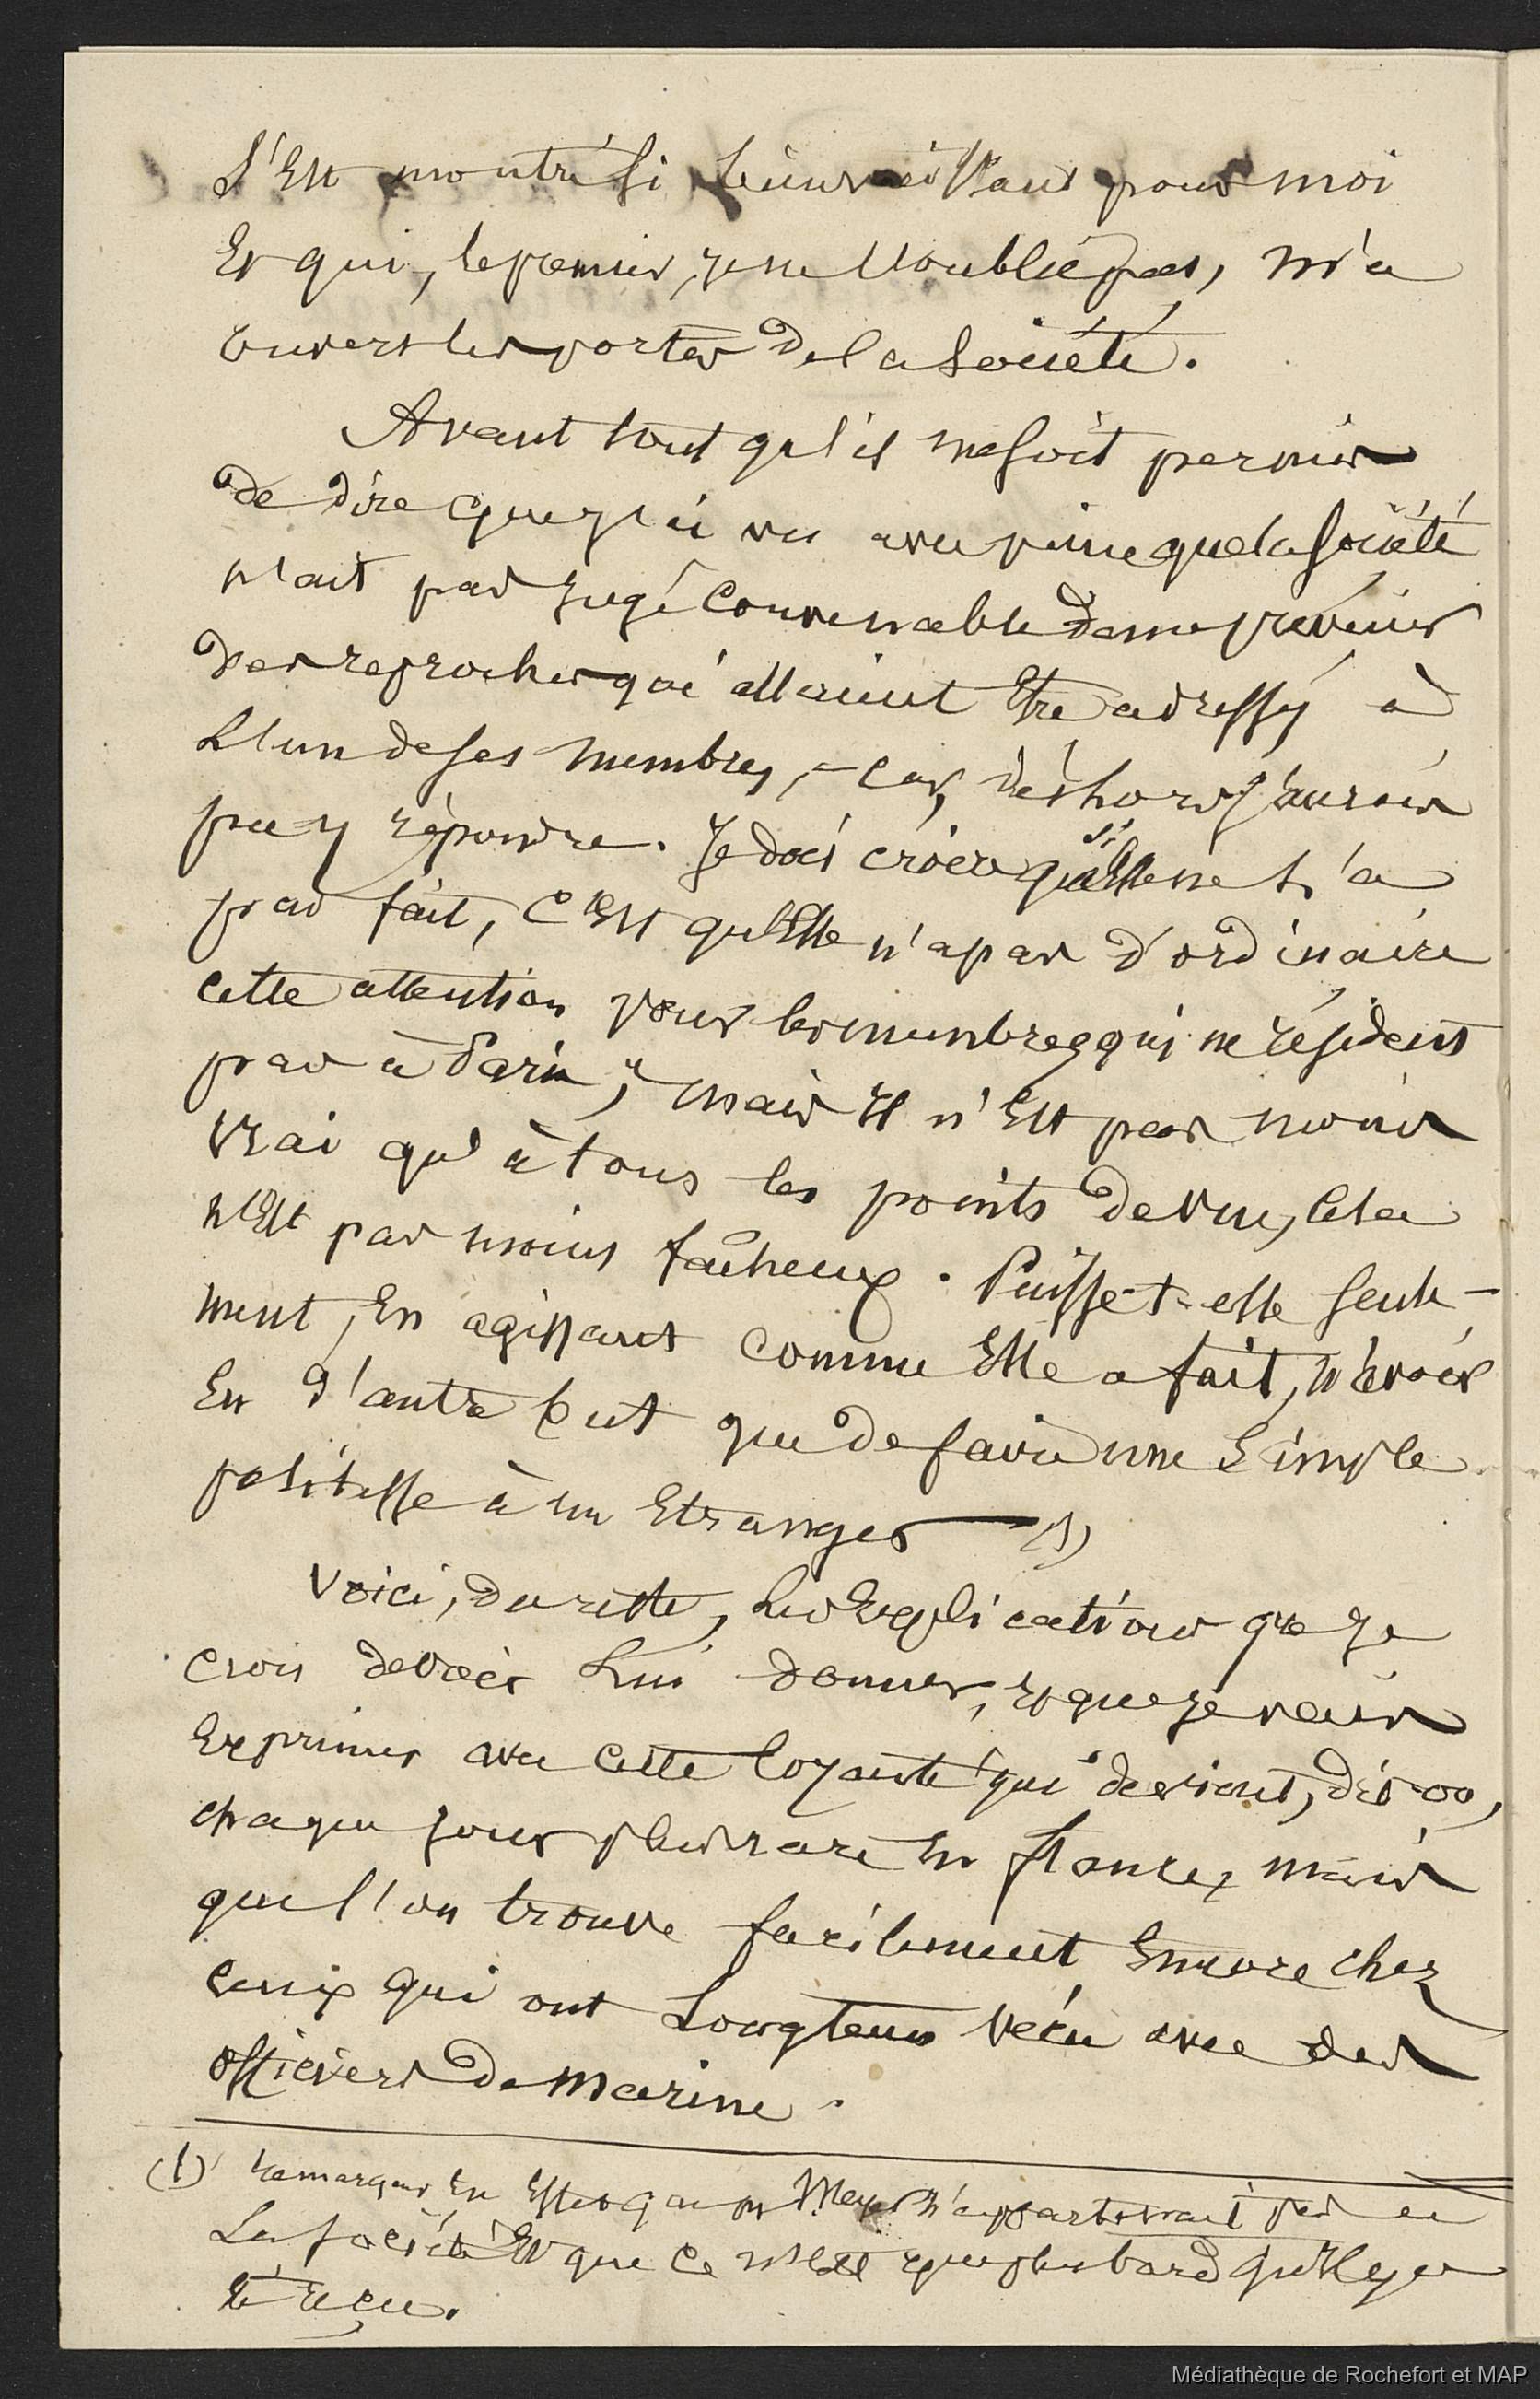 s'est montré si bienveillant pour moi
et qui, le premier, je ne l'oublie pas, m'a
ouvert les portes de la Société.
Avant tout qu'il me soit permis
de dire que j'ai vu avec peine que la Société
n'ait pas jugé convenable de me prévenir
des reproches qui allaient être adressés à
l'un de ses membres, – car, dès lors j'aurais
pu y répondre. Je dois croire que si elle ne l'a
pas fait, c'est qu'elle n'a pas d'ordinaire
cette attention pour les membres qui ne résident
pas à Paris, mais il n'est pas moins
vrai qu'à tous les points de vue, cela
n'est pas moins fâcheux. Puisse-t-elle seule-
ment, en agissant comme elle a fait, n'avoir
eu d'autre but que de faire une simple
politesse à un étranger (1)
Voici, du reste, les explications que je
crois devoir lui donner, et que je vais
exprimer avec cette loyauté qui devient, dit-on,
chaque jour plus rare en France, mais
que l'on trouve facilement encore chez
ceux qui ont longtems vécu avec des
officiers de marine.
(1) remarquez en effet que M. Meyer n'appartenait pas à
la Société et que ce n'est que plus tard qu'il y a
été reçu.
Médiathèque de Rochefort et MAP